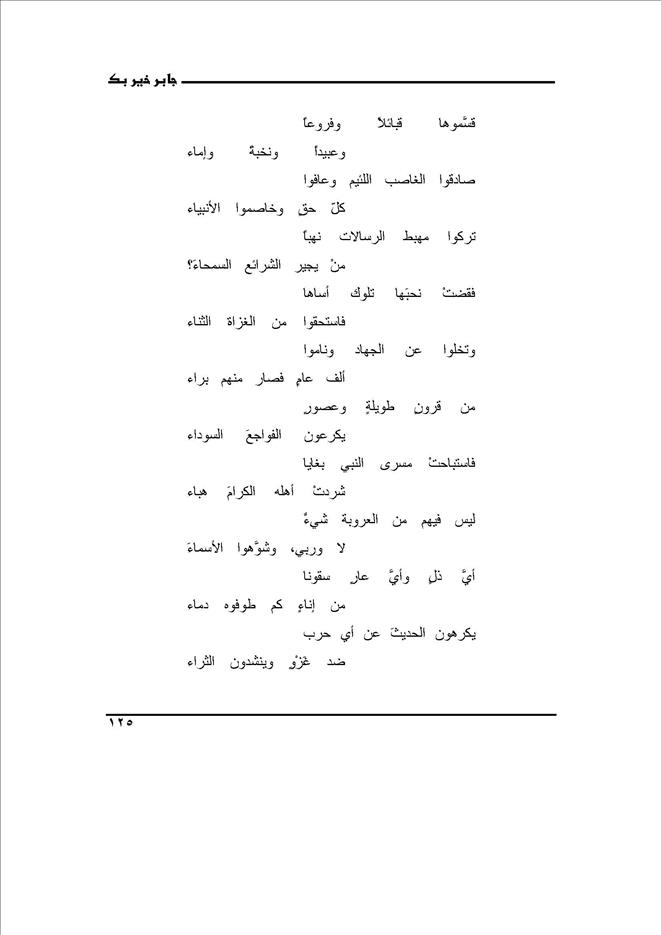 جابر خير بك
قسَّموها قبائلاً وفروعاً
وعبيداً ونخبةً وإماء
صادقوا الغاصب اللئيم وعافوا
كلّ حقٍ وخاصموا الأنبياء
تركوا مهبط الرسالات نهباً
منْ يجير الشرائع السمحاءَ؟
فقضتْ نحبَها تلوك أساها
فاستحقوا من الغزاة الثناء
وتخلوا عن الجهاد وناموا
ألف عامٍ فصار منهم براء
من قرونٍ طويلةٍ وعصورٍ
يكرعون الفواجعَ السوداء
فاستباحتْ مسرى النبي بغايا
شردتْ أهله الكرامَ هباء
ليس فيهم من العروبة شيءٌ
لا وربي، وشوَّهوا الأسماءَ
أيَّ ذلٍ وأيَّ عارٍ سقونا
من إناءٍ كم طوفوه دماء
يكرهون الحديثَ عن أي حرب
ضد غَزْوٍ وينشدون الثراء
١٢٥